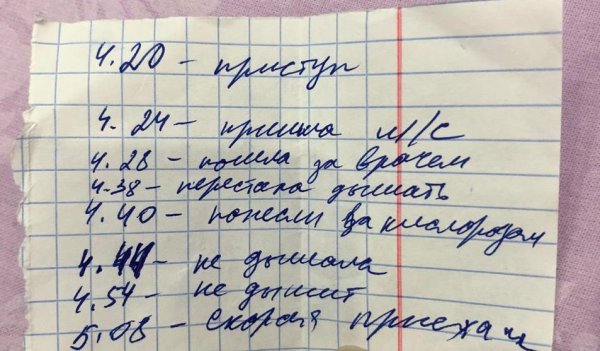 4.20 – приступ
4.24 – пришла м/с
4.28 – пошла за врачем
4.38 – перестала дышать
4.40 – понесли за кислородом
4.44 – не дышала
4.54 – не дышит
5.08 – скорая приехала